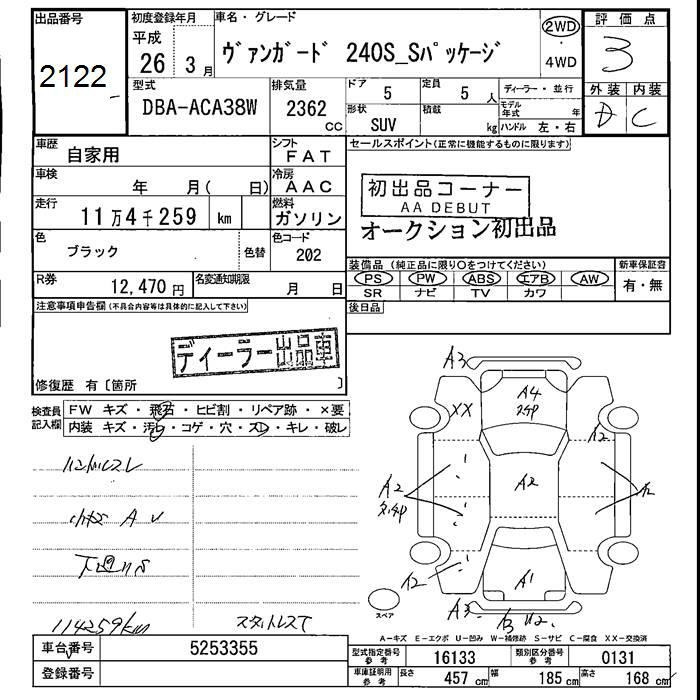 出品番号
2122
初度登録年月
平成
26 3月
車名・グレード
ヴァンガード 240S_Sパッケージ
2WD
・
4WD
評価点
3
型式
DBA-ACA38W
排気量
2362 cc
ドア
5
定員
5 人
形状
SUV
積載
kg
ディーラー・並行
モデル年式 年
ハンドル 左・右
外装 内装
C
車歴
自家用
シフト
FAT
車検
年 月( 日)
冷房
AAC
走行
11万4千259 km
燃料
ガソリン
色
ブラック
色替
色コード
202
R券
12,470円
名変通知期限
月 日
セールスポイント(正常に機能するものに限ります)
初出品コーナー
AA DEBUT
オークション初出品
装備品(純正品に限り○をつけてください)
PS PW ABS エアB AW
SR ナビ TV カワ
新車保証書
有・無
後日品
注意事項申告欄(不具合内容等は具体的に記入して下さい)
ディーラー出品車
修復歴 有〔箇所 〕
検査員記入欄
FW キズ・飛石・ヒビ割・リペア跡・×要
内装 キズ・汚レ・コゲ・穴・スレ・キレ・破レ
ハンドルスレ
小キズ A U
下廻りS
114259km
スタットレスT
A3
A4
XX
A2
A2
A2
A1
A3
スペア
A－キズ E－エクボ U－凹み W－補修跡 S－サビ C－腐食 XX－交換済
車台番号
5253355
登録番号
型式指定番号
参考
16133
類別区分番号
参考
0131
車庫証明用
参考
長さ
457 cm
幅
185 cm
高さ
168 cm